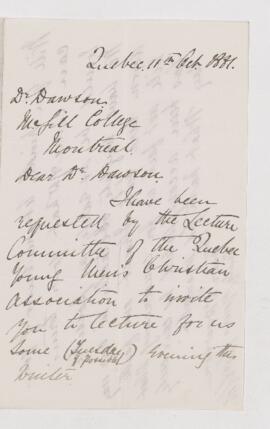 Quebec 11th Oct 1881.
Dr Dawson.
McGill College
Montreal.
Dear Dr Dawson.
I have been
requested by the Lecture
Committee of the Quebec
Young Men's Christian
Association to invite
you to lecture for us
some (Tuesday if possible) Evening this
Winter